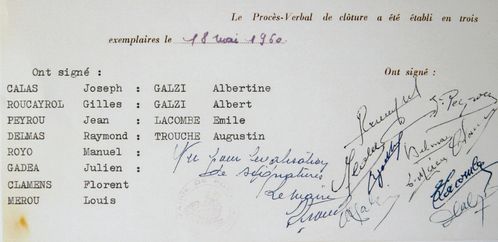 Le Procès-Verbal de clôture a été établi en trois
exemplaires le 18 mai 1960
Ont signé : Ont signé :
CALAS Joseph : GALZI Albertine
ROUCAYROL Gilles : GALZI Albert
PEYROU Jean : LACOMBE Emile
DELMAS Raymond : TROUCHE Augustin
ROYO Manuel :
GADEA Julien :
CLAMENS Florent
MEROU Louis
Vu pour légalisation
de signatures
Le maire